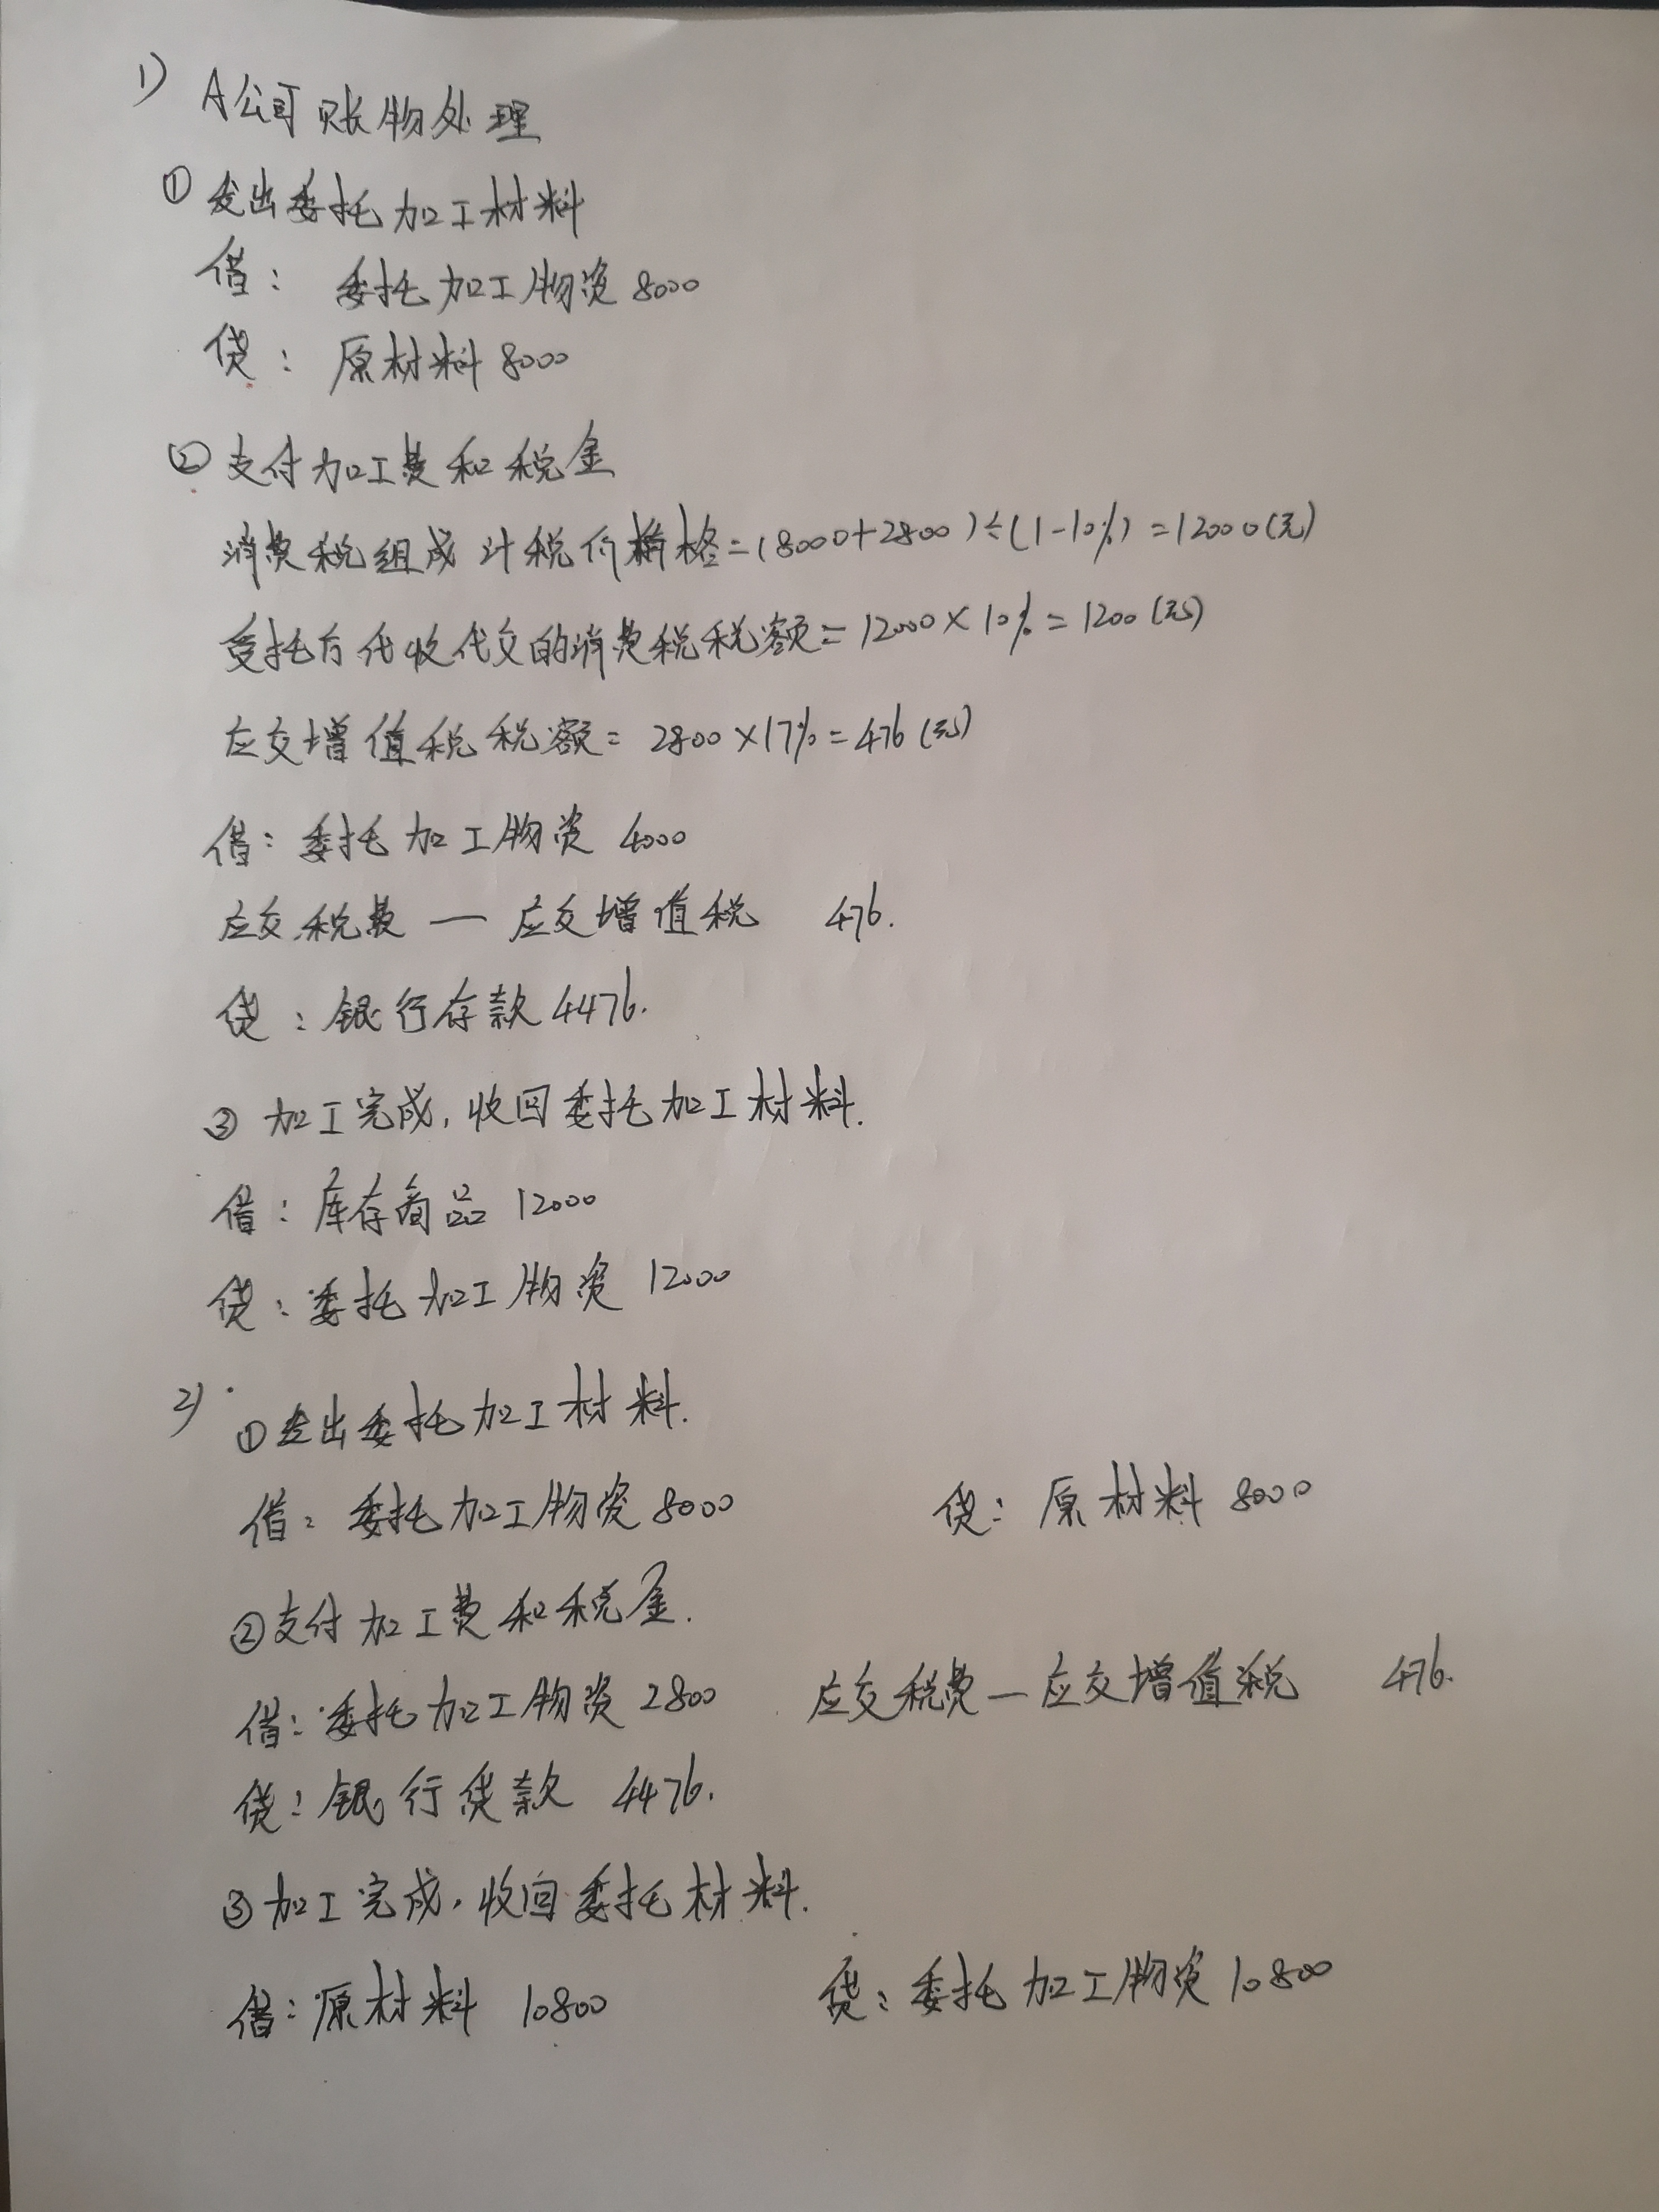 1) A公司账物处理
① 发出委托加工材料
借： 委托加工物资 8000
贷： 原材料 8000
② 支付加工费和税金
消费税组成计税价格=(8000+2800)÷(1-10%)=12000(元)
受托方代收代交的消费税税额=12000×10%=1200(元)
应交增值税税额=2800×17%=476(元)
借：委托加工物资 4000
应交税费 — 应交增值税 476.
贷：银行存款 4476.
③ 加工完成,收回委托加工材料.
借：库存商品 12000
贷：委托加工物资 12000
2) ①发出委托加工材料.
借：委托加工物资 8000 贷：原材料 8000
②支付加工费和税金.
借：委托加工物资 2800 应交税费—应交增值税 476.
贷：银行贷款 4476.
③加工完成,收回委托材料.
借：原材料 10800 贷：委托加工物资 10800